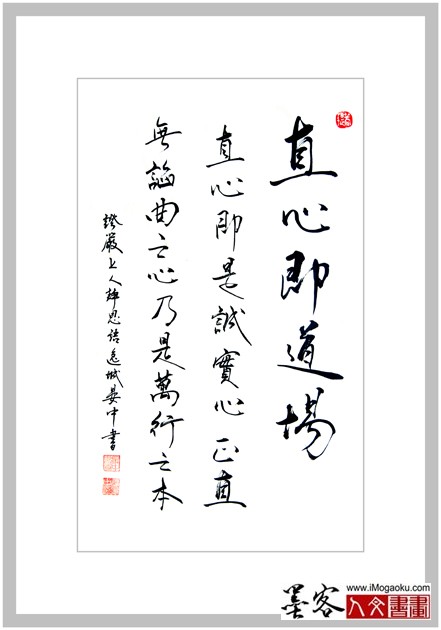 直心即道場
直心即是誠實心正直
無諂曲之心乃是萬行之本
證嚴上人靜思語逸城晏中書
墨客
www.iMogaoku.com
人文書畫